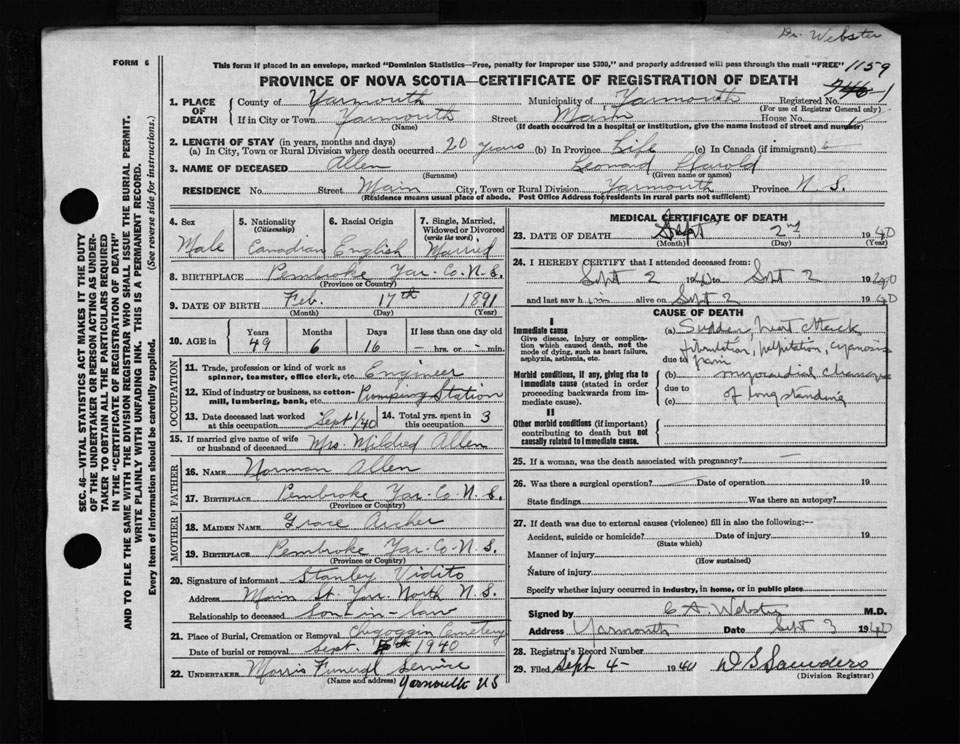 Dr. Webster
FORM 6
This form if placed in an envelope, marked "Dominion Statistics—Free, penalty for improper use $300," and properly addressed will pass through the mail "FREE"
1159
PROVINCE OF NOVA SCOTIA—CERTIFICATE OF REGISTRATION OF DEATH
1. PLACE OF DEATH
County of Yarmouth Municipality of Yarmouth Registered No.
(For use of Registrar General only)
If in City or Town Yarmouth Street Main House No.
(Name) (If death occurred in a hospital or institution, give the name instead of street and number)
2. LENGTH OF STAY (in years, months and days)
(a) In City, Town or Rural Division where death occurred 20 years (b) In Province Life (c) In Canada (if immigrant)
3. NAME OF DECEASED Allen Leonard Harold
(Surname) (Given name or names)
RESIDENCE No. Street Main City, Town or Rural Division Yarmouth Province N.S.
(Residence means usual place of abode. Post Office Address for residents in rural parts not sufficient)
4. Sex Male
5. Nationality (Citizenship) Canadian
6. Racial Origin English
7. Single, Married, Widowed or Divorced (write the word) Married
8. BIRTHPLACE Pembroke Yar. Co. N.S.
(Province or Country)
9. DATE OF BIRTH Feb. 17th 1891
(Month) (Day) (Year)
10. AGE in Years Months Days If less than one day old
49 6 16 – hrs. or – min.
OCCUPATION
11. Trade, profession or kind of work as spinner, teamster, office clerk, etc. Engineer
12. Kind of industry or business, as cotton-mill, lumbering, bank, etc. Pumping Station
13. Date deceased last worked at this occupation Sept 1/40
14. Total yrs. spent in this occupation 3
15. If married give name of wife or husband of deceased Mrs Mildred Allen
FATHER
16. NAME Norman Allen
17. BIRTHPLACE Pembroke Yar. Co. N.S.
(Province or Country)
MOTHER
18. MAIDEN NAME Grace Archer
19. BIRTHPLACE Pembroke Yar. Co. N.S.
(Province or Country)
20. Signature of informant Stanley Vidito
Address Main St. Yar. North N.S.
Relationship to deceased Son-in-law
21. Place of Burial, Cremation or Removal Chegoggin Cemetery
Date of burial or removal Sept. 1940
22. UNDERTAKER Morris Funeral Service
(Name and address) Yarmouth NS
MEDICAL CERTIFICATE OF DEATH
23. DATE OF DEATH Sept 2nd 1940
(Month) (Day) (Year)
24. I HEREBY CERTIFY that I attended deceased from:
Sept 2 1940 to Sept 2 1940
and last saw him alive on Sept 2 1940
CAUSE OF DEATH
I
Immediate cause
Give disease, injury or complication which caused death, not the mode of dying, such as heart failure, asphyxia, asthenia, etc.
(a) Sudden heart attack
fibrillation, palpitation, cyanosis
due to pain
Morbid conditions, if any, giving rise to immediate cause (stated in order proceeding backwards from immediate cause).
(b) myocardial changes
due to
(c) of long standing
II
Other morbid conditions (if important) contributing to death but not causally related to immediate cause.
25. If a woman, was the death associated with pregnancy? —
26. Was there a surgical operation? Date of operation 19
State findings Was there an autopsy?
27. If death was due to external causes (violence) fill in also the following:—
Accident, suicide or homicide? Date of injury 19
(State which)
Manner of injury
(How sustained)
Nature of injury
Specify whether injury occurred in industry, in home, or in public place
Signed by C A Webster M.D.
Address Yarmouth Date Sept 3 1940
28. Registrar's Record Number
29. Filed Sept 4 - 1940 D S Saunders
(Division Registrar)
SEC. 46—VITAL STATISTICS ACT MAKES IT THE DUTY
OF THE UNDERTAKER OR PERSON ACTING AS UNDER-
TAKER TO OBTAIN ALL THE PARTICULARS REQUIRED
IN THE "CERTIFICATE OF REGISTRATION OF DEATH"
AND TO FILE THE SAME WITH THE DIVISION REGISTRAR WHO SHALL ISSUE THE BURIAL PERMIT.
WRITE PLAINLY WITH UNFADING INK. THIS IS A PERMANENT RECORD.
Every item of information should be carefully supplied. (See reverse side for instructions.)